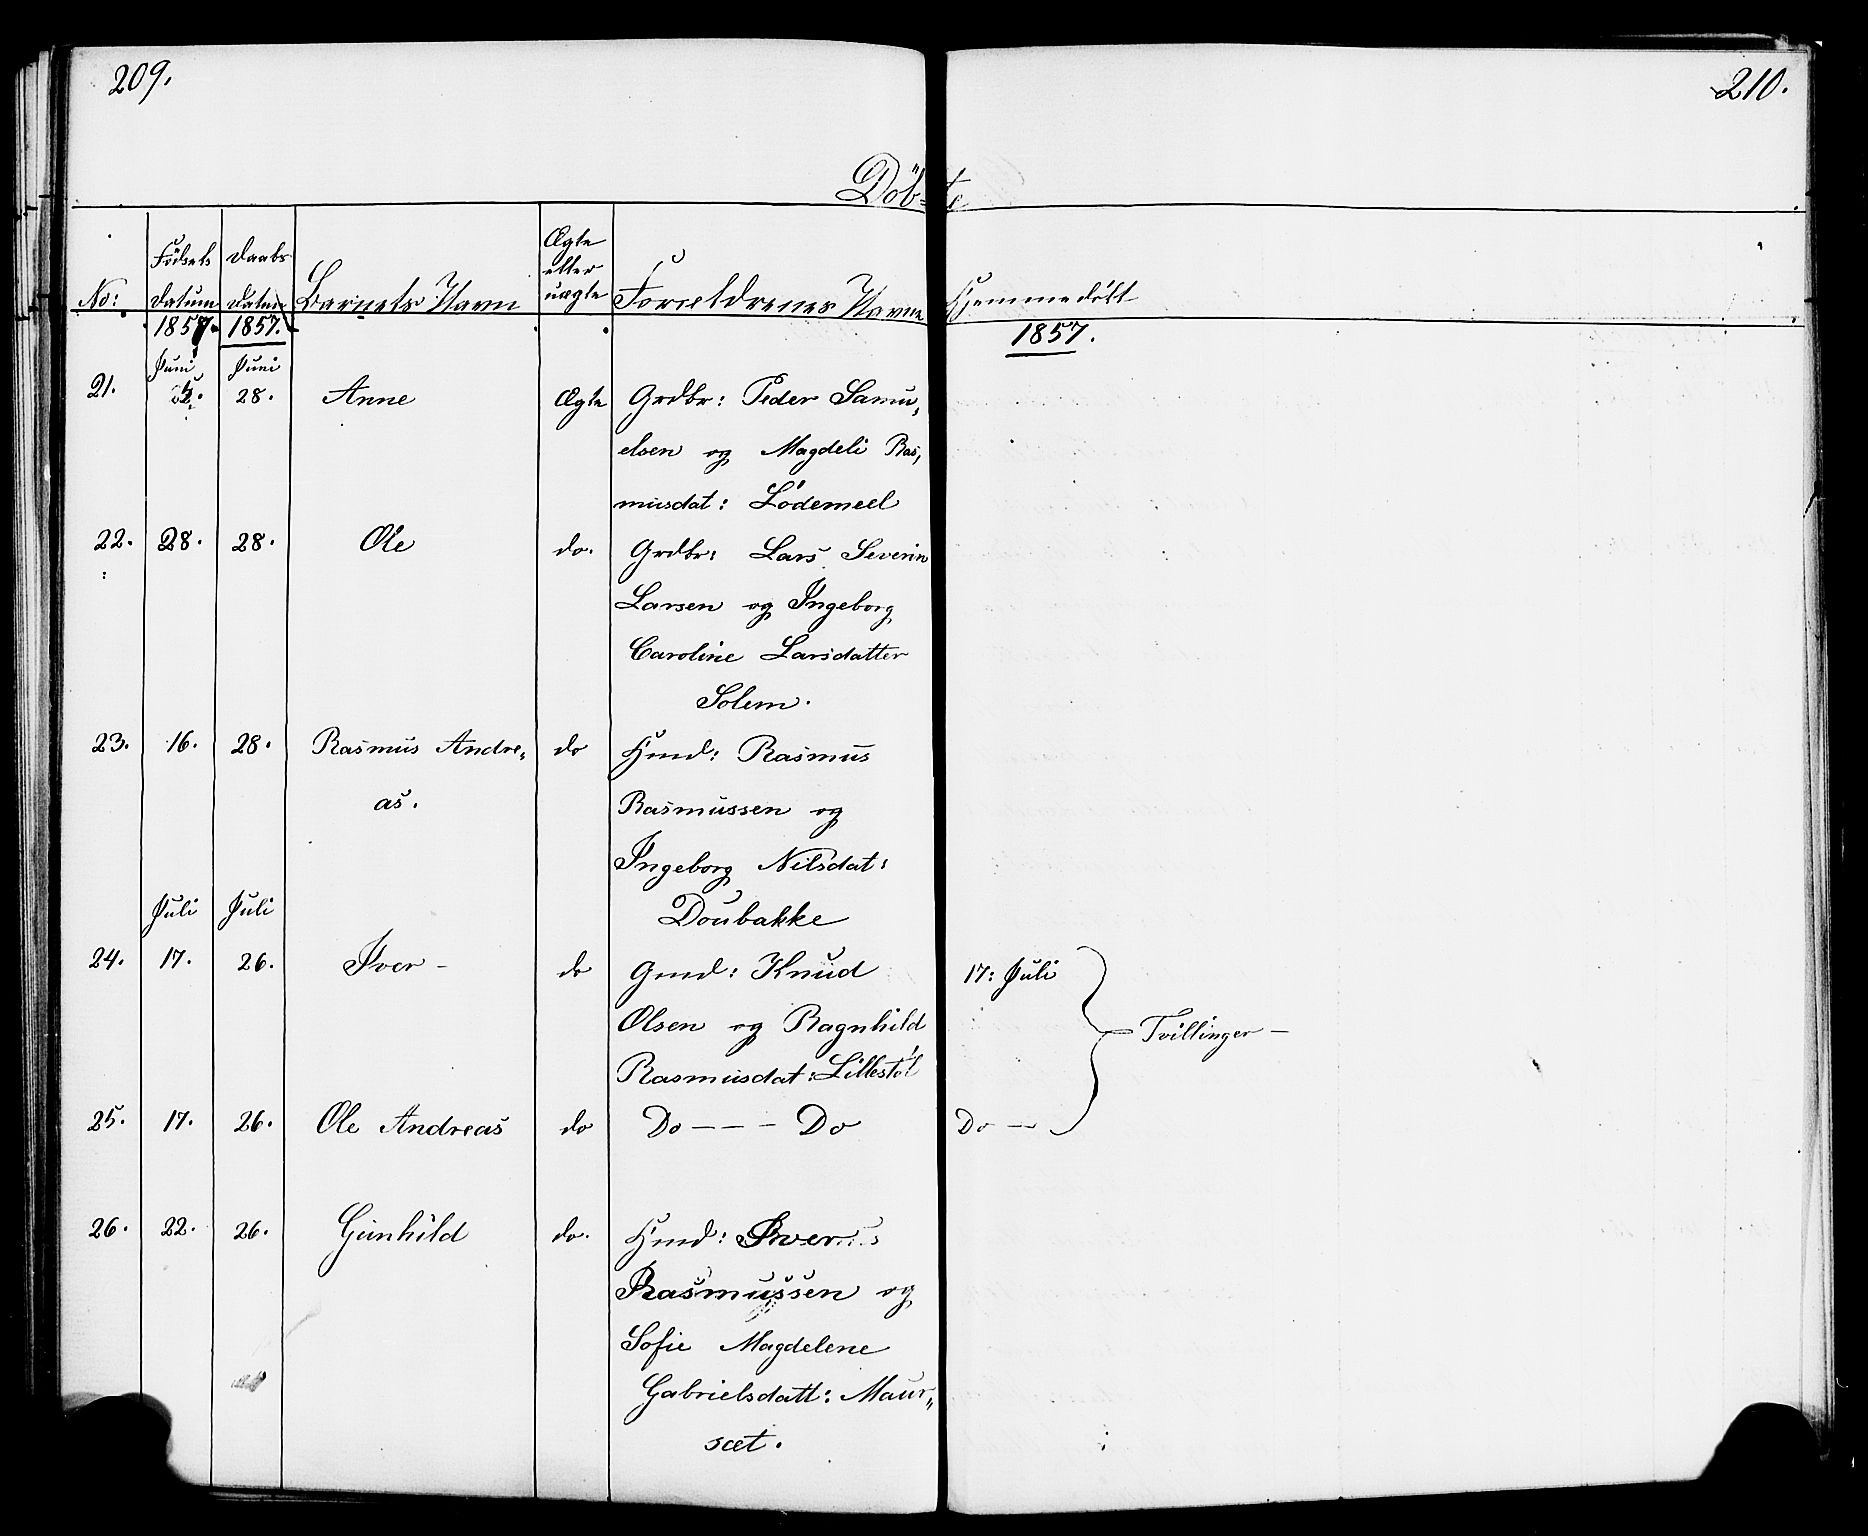 209.
210.
Döbte
No:
Födsels Datum
Daabs Datum
Barnets Navn
Ægte eller uægte
Forældrenes Navne
Hjemmedöbt
1857. 1857. 1857.
Juni Juni
21. 28. Anne Ægte Grdbr: Peder Samu„
elsen og Magdeli Ras„
musdat: Lödemeel
22. 28. 28. Ole do. Grdbr: Lars Severin
Larsen og Ingeborg
Caroline Larsdatter
Solem.
23. 16. 28. Rasmus Andre„ do Hmd: Rasmus
as. Rasmussen og
Ingeborg Nilsdat:
Juli Juli Doubakke
24. 17. 26. Iver - do Gmd: Knud 17: Juli
Olsen og Ragnhild Tvillinger —
Rasmusdat: Lillestöl
25. 17. 26. Ole Andreas do Do - - - Do Do - -
26. 22. 26. Gunhild do. Hmd: Iver
Rasmussen og
Sofie Magdelene
Gabrielsdatt: Maur„
sæt.